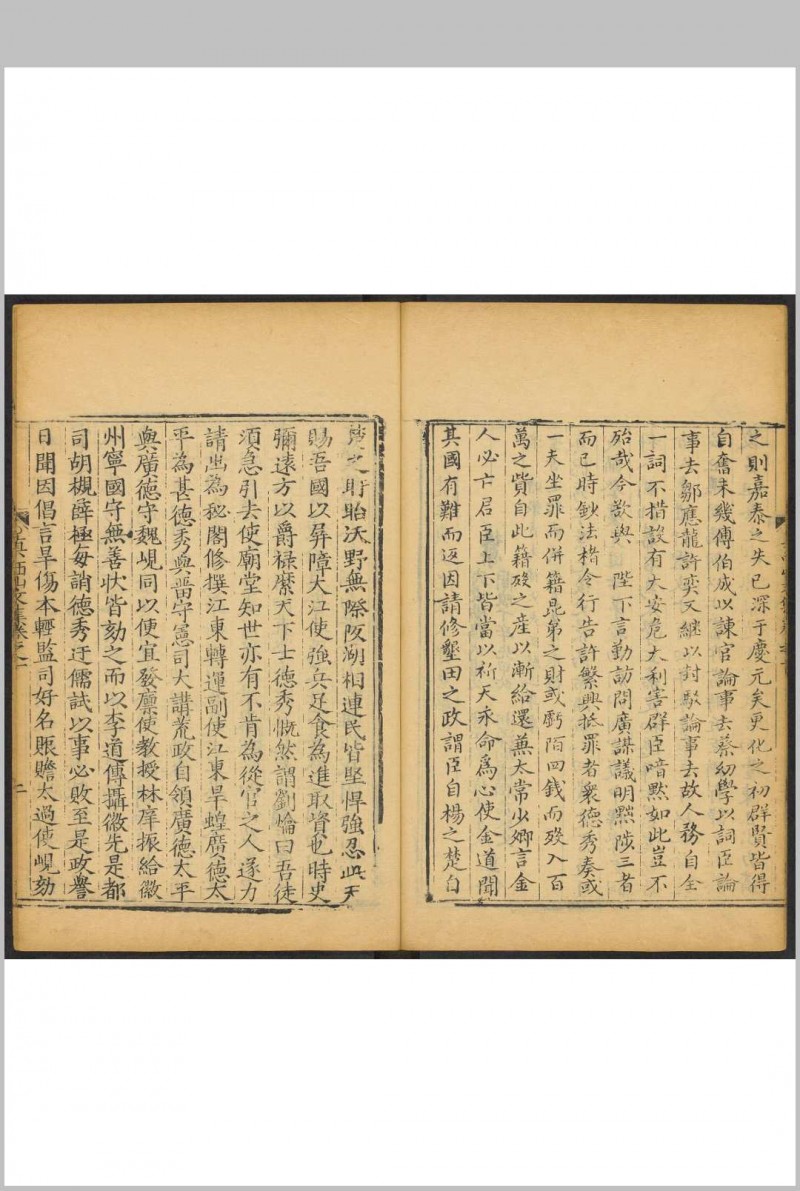 之則嘉泰之失已深于慶元矣更化之初群賢皆得
自奮未幾傅伯成以諫官論事去蔡幼學以詞臣論
事去鄒應龍許奕又繼以封駁論事去故人務自全
一詞不措設有大安危大利害群臣喑黙如此豈不
殆哉今欲與 陛下言勤訪問廣謀議明黜陟三者
而已時鈔法楮令行告訐繁興抵罪者衆德秀奏或
一夫坐罪而併籍昆弟之財或虧陌四錢而殁入百
萬之貲自此籍殁之産以漸給還兼太常少卿言金
人必亡君臣上下皆當以祈天永命爲心使金道聞
其國有難而返因請修墾田之政謂臣自楊之楚自
楚之盱眙沃野無際陂湖相連民皆堅悍強忍此天
賜吾國以屏障大江使強兵足食為進取資也時史
彌遠方以爵禄縻天下士德秀慨然謂劉爚曰吾徒
須急引去使廟堂知世亦有不肯為從官之人遂力
請出為秘閣修撰江東轉運副使江東旱蝗廣德太
平為甚德秀與畱守憲司大講荒政自領廣德太平
與廣德守魏峴同以便宜發廩使教授林庠振給徽
州寧國守無善狀皆劾之而以李道傳攝徽先是都
司胡槻薛極每誚德秀迂儒試以事必敗至是政譽
日聞因倡言旱傷本輕監司好名賑贍太過使峴劾